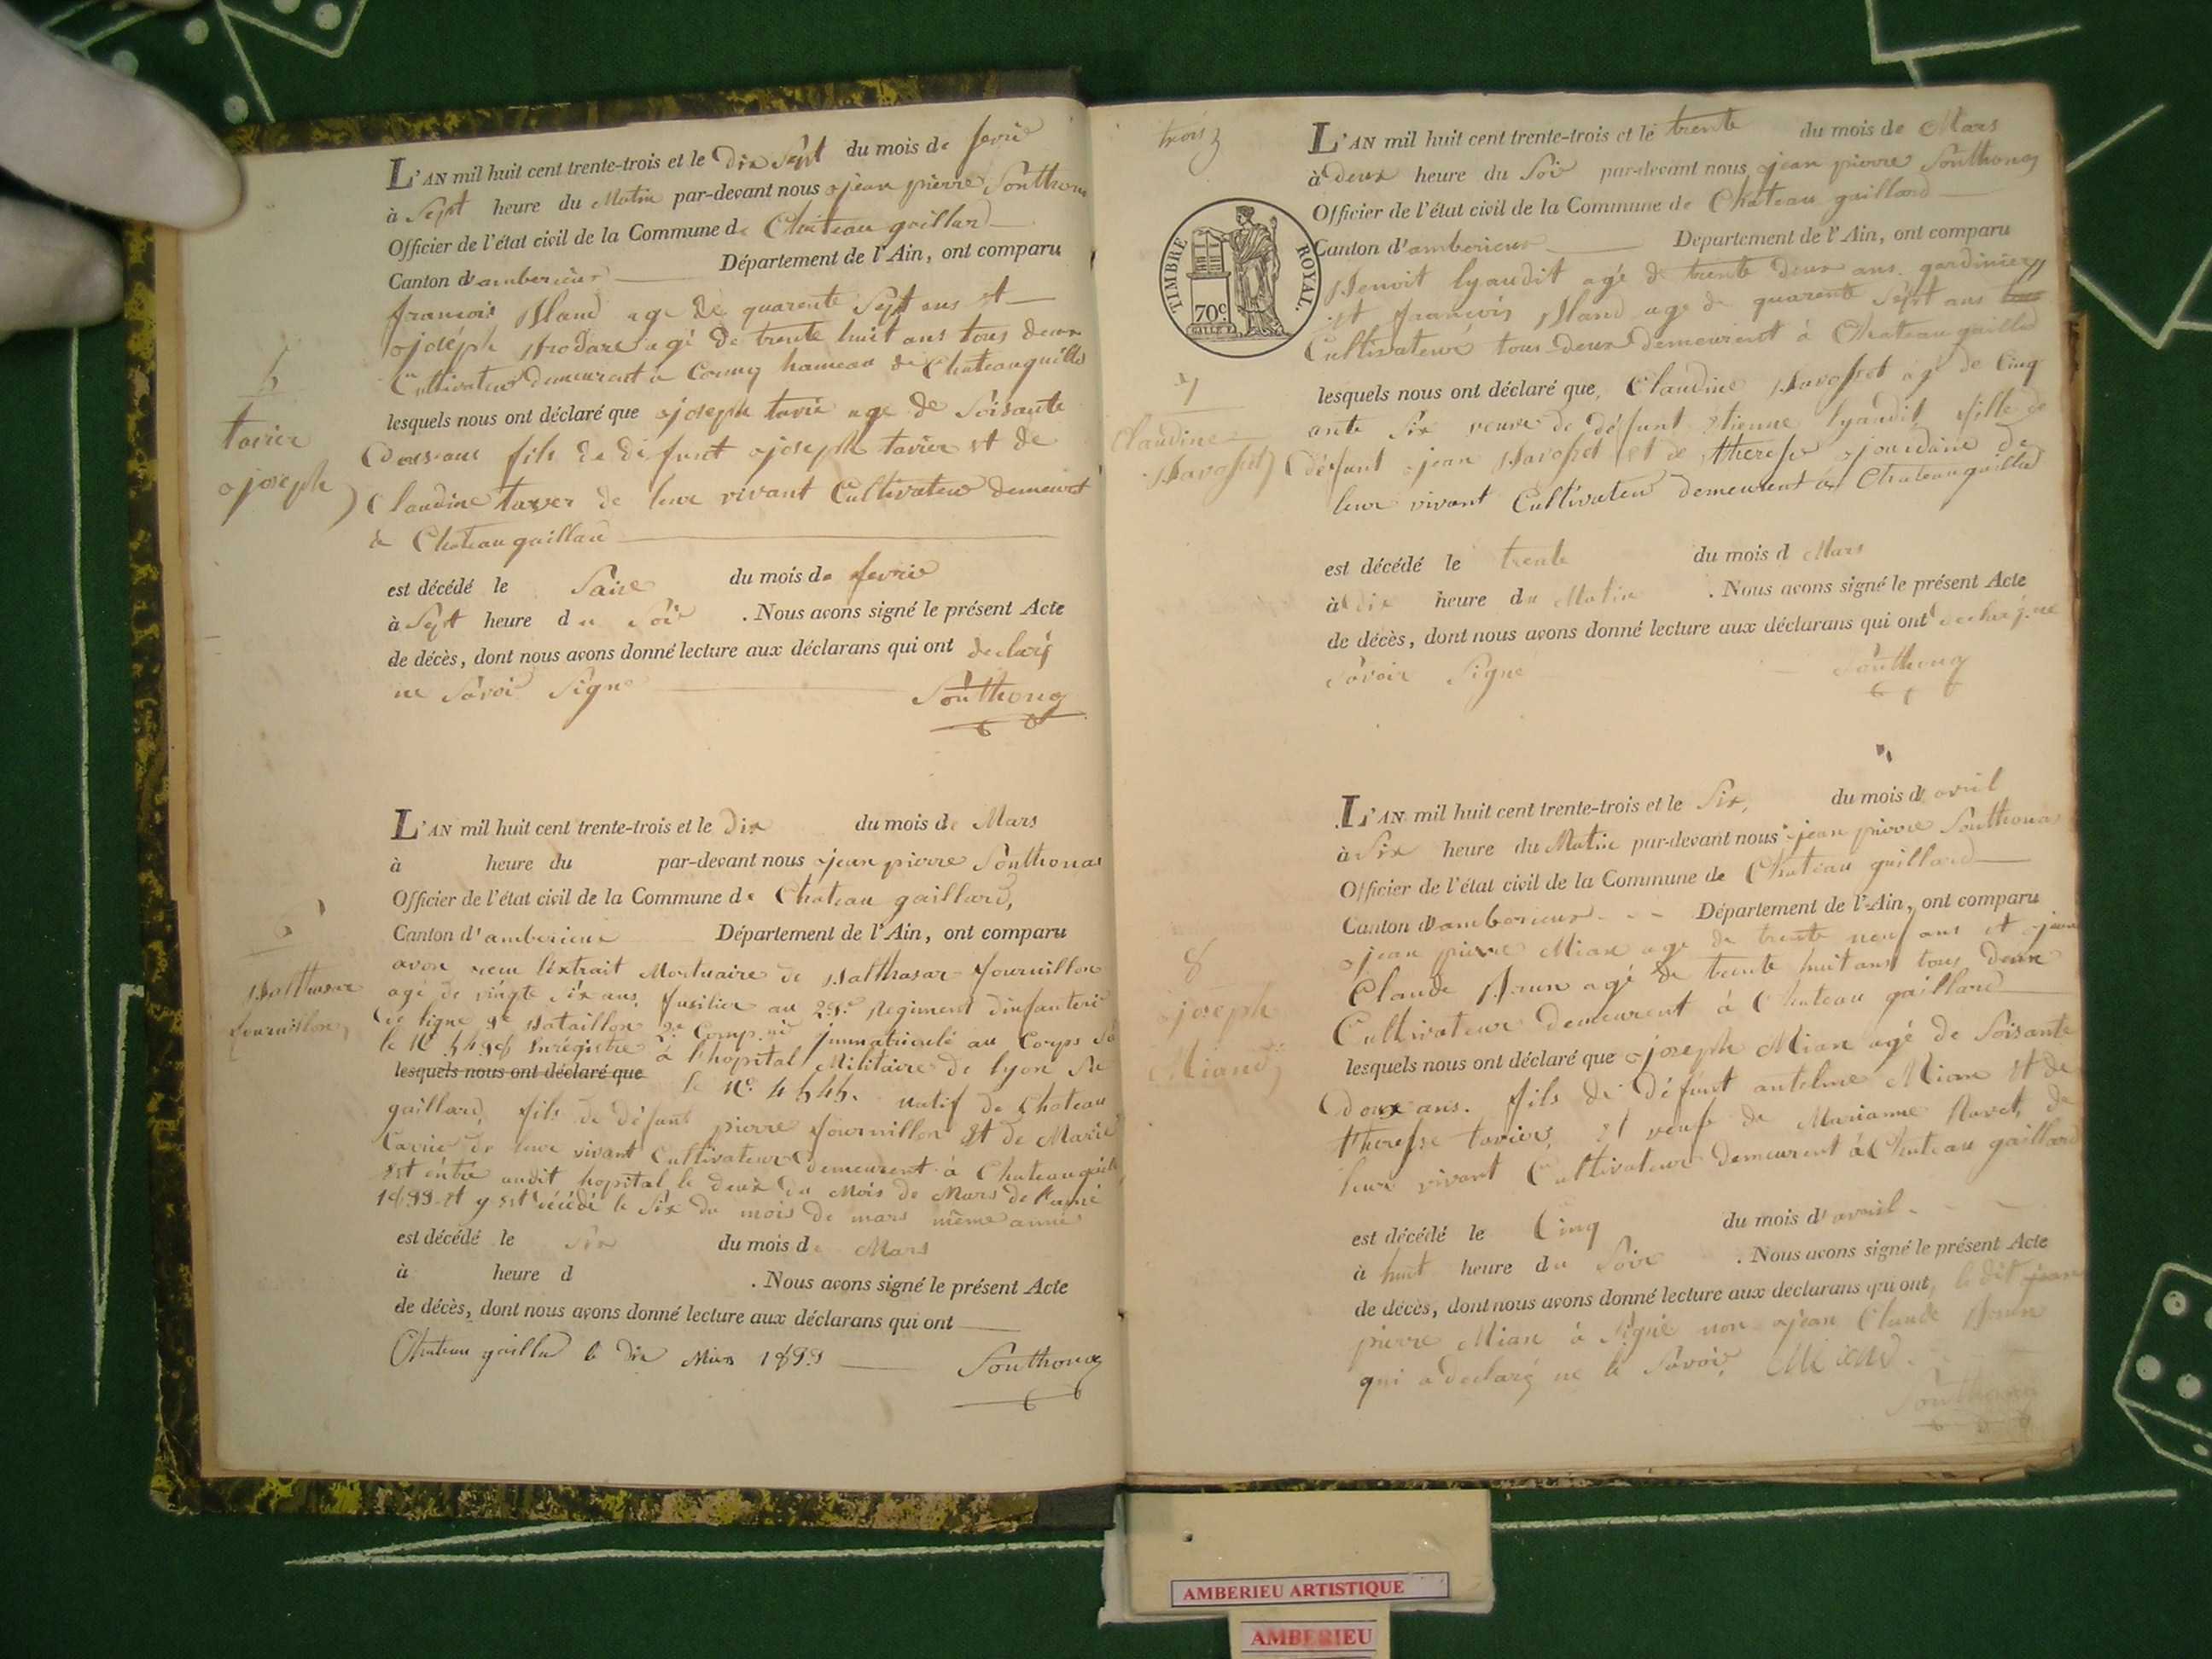 L'AN mil huit cent trente-trois et le Dix Sept du mois de fevrie
à Sept heure du Matin par-devant nous jean pierre Southona
Officier de l'état civil de la Commune de Chateau gaillard
Canton d'amberieux Département de l'Ain, ont comparu
francois Bland agé de quarente Sept ans et
joséph Brodare agé de trente huit ans tous deux
Cultivateur demeurent a Cormoz hameau de Chateaugailla
5
tavier
joseph
lesquels nous ont déclaré que joseph tavie age de Soisante
Douse ans fils de defunt joseph tavier et de
Claudine tavier de leur vivant Cultivateur demeurt
a Chateau gaillard
est décédé le Saise du mois de fevrie
à Sept heure du Soir . Nous avons signé le présent Acte
de décès, dont nous avons donné lecture aux déclarans qui ont declaré
ne Savoir Signe
Southonay
L'AN mil huit cent trente-trois et le Dix du mois de Mars
à heure du par-devant nous jean pierre Southonas
Officier de l'état civil de la Commune de Chateau gaillard,
Canton d'amberieux Département de l'Ain, ont comparu
6
Balthasar
fournillon
avon recu l'extrait Mortuaire de Balthasar fournillon
agé de vingte Six ans, fusilier au 29e Regiment dinfanterie
de ligne 3e Bataillon 2e Comp.nie jmmatriculé au Corps So
le No 5498 Enrégistre à l'hopital Militaire de lyon Su
lesquels nous ont déclaré que le No. 4545. natif de Chateau
gaillard, fils de défunt pierre fournillon Et de Marie
tavier de leur vivant Cultivateur demeurent à Chateaugailla
Est éntré audit hopital le deux du Mois de Mars de l'anné
1833 et y est décédé le Six du mois de mars même anné
est décédé le Six du mois de Mars
à heure d . Nous avons signé le présent Acte
de décès, dont nous avons donné lecture aux déclarans qui ont
Chateau gaillard le Dix Mars 1833 Southonay
trois 3
TIMBRE ROYAL.
70c.
L'AN mil huit cent trente-trois et le trente du mois de Mars
à Deux heure du Soir par-devant nous jean pierre Southonay
Officier de l'état civil de la Commune de Chateau gaillard
Canton d'amberieux Département de l'Ain, ont comparu
Benoit lyaudit agé de trente deux ans. gardinier
et françois Bland age de quarente Sept ans
Cultivateur tous-deux demeurent à Chateaugaillad
7
Claudine
Bavosset
lesquels nous ont déclaré que, Claudine Bavosset agé de Cinq
ante Six veuve de défunt Etienne lyaudit fille de
défunt jean Bavosset et de therese jourdane de
leur vivant Cultivateur demeurent à Chateaugaillad
est décédé le trente du mois d Mars
à dix heure du Matin . Nous avons signé le présent Acte
de décès, dont nous avons donné lecture aux déclarans qui ont declaré ne
Savoir Signe
Southonay
L'AN mil huit cent trente-trois et le Six, du mois d'avril
à Six heure du Matin par-devant nous jean pierre Southonas
Officier de l'état civil de la Commune de Chateau gaillard
Canton d'amberieux Département de l'Ain, ont comparu
jean pierre Mian age de trente neuf ans et jean
Claude Brun agé de trente huit ans tous deux
Cultivateur demeurent à Chateau gaillard
8
joseph
Miand
lesquels nous ont déclaré que joseph Mian agé de Soisante
douze ans. fils de défunt antelme Mian Et de
therese tavier, Et veuf de Marianne Ravet, de
leur vivant Cultivateur demeurent à Chateau gaillard
est décédé le Cinq du mois d'avril
à huit heure du Soir . Nous avons signé le présent Acte
de décès, dont nous avons donné lecture aux déclarans qui ont, le dit jean
pierre Mian à Signé non jean Claude Brun
qui a declaré ne le Savoir, Miand
Southonay
AMBERIEU ARTISTIQUE
AMBERIEU